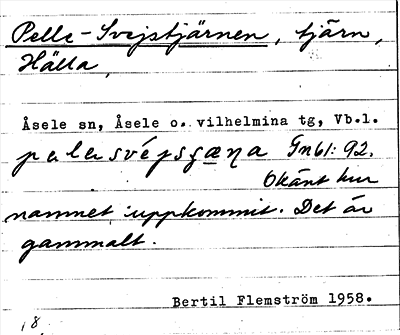 Pelle-Svejstjärnen, tjärn,
Hälla,
Åsele sn, Åsele o. vilhelmina tg, Vb.l.
Gnb1: 92.
Okänt hur
namnet uppkommit. Det är
gammalt.
Bertil Flemström 1958.
18